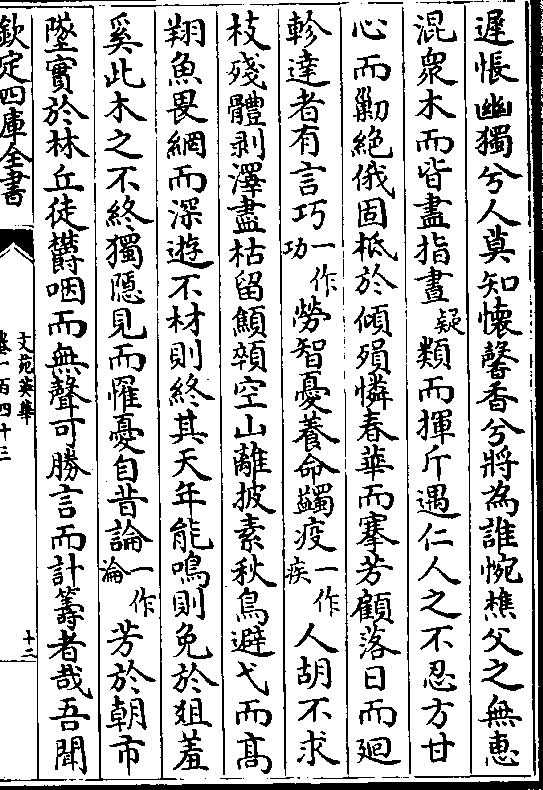 遲悵幽獨兮人莫知懷馨香兮將為誰惋樵父之無惠
混衆木而皆盡指晝疑類而揮斤遇仁人之不忍方甘
心而勦絶俄固柢於傾殞憐春華而搴芳顧落日而廻
軫達者有言巧一作功勞智憂養命蠲疫一作疾人胡不求
枝殘體剥澤盡枯留顦顇空山離披素秋鳥避弋而髙
翔魚畏網而深遊不材則終其天年能鳴則免於俎羞
奚此木之不終獨隠見而罹憂自昔論一作淪芳於朝市
墜實於林丘徒欝咽而無聲可勝言而計籌者哉吾聞
欽定四庫全書
文苑英華
卷一百四十三
十二